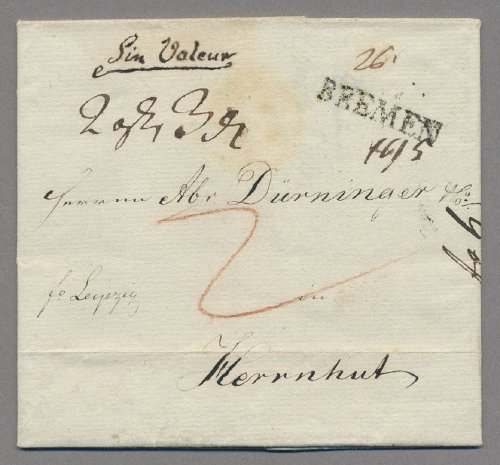 Sin Valeur
26
BREMEN
2 3
Herrnn Abr Dürninger & Co:
2
fo Leipzig
in
Herrnhut